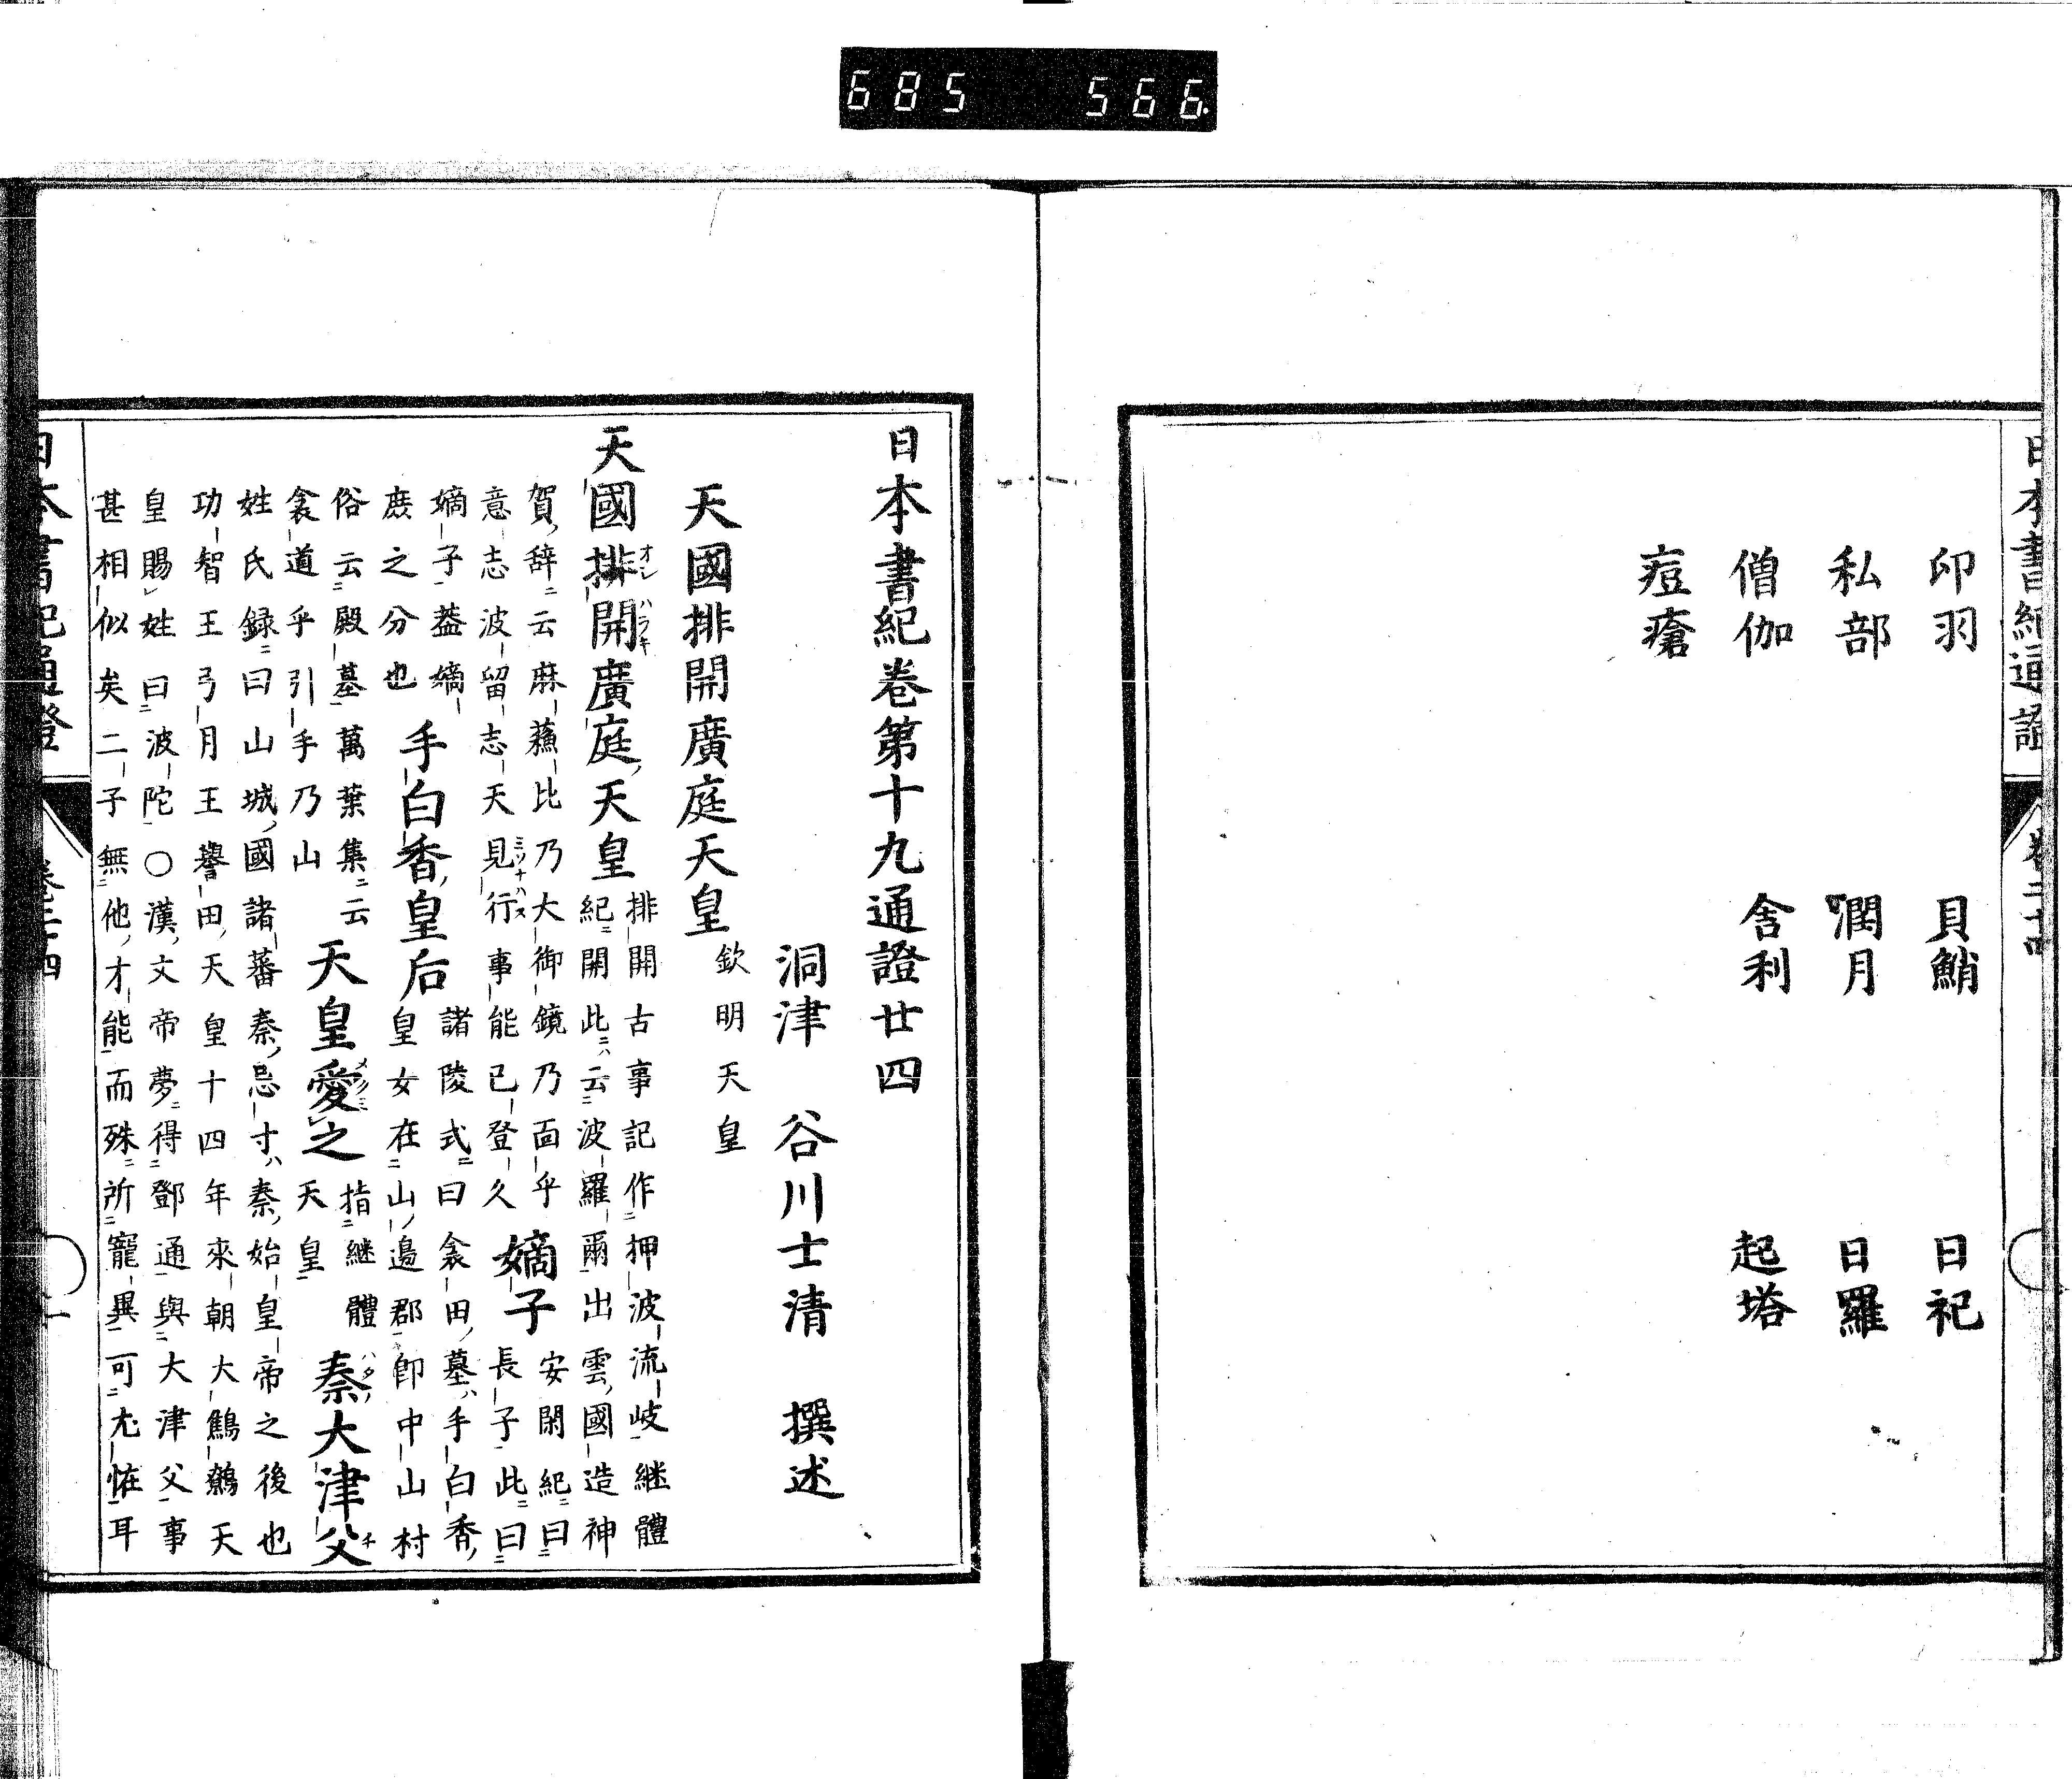 685 566.
日本書紀通證
卷二十四
印羽 貝鮹 日祀
私部 潤月 日羅
僧伽 舍利 起塔
痘瘡
日本書紀卷第十九通證廿四
洞津 谷川士清 撰述
天國排開廣庭天皇 欽明天皇
天國排開廣庭天皇
排開古事記作押波流岐継體
紀開此云波羅爾出雲國造神
賀辞云麻蘓比乃大御鏡乃面乎
意志波留志天見行事能已登久
嫡子
安閑紀曰
長子此曰
嫡子葢嫡
庶之分也
手白香皇后
諸陵式曰衾田墓手白香
皇女在山邉郡卽中山村
俗云殿墓萬葉集云
衾道乎引手乃山
天皇愛之
指継體
天皇
秦大津父
姓氏録曰山城國諸蕃秦忌寸秦始皇帝之後也
功智王弓月王譽田天皇十四年來朝大鷦鷯天
皇賜姓曰波陀〇漢文帝夢得鄧通與大津父事
甚相似矣二子無他才能而殊所寵異可尤恠耳
日本書紀通證
卷二十四
一